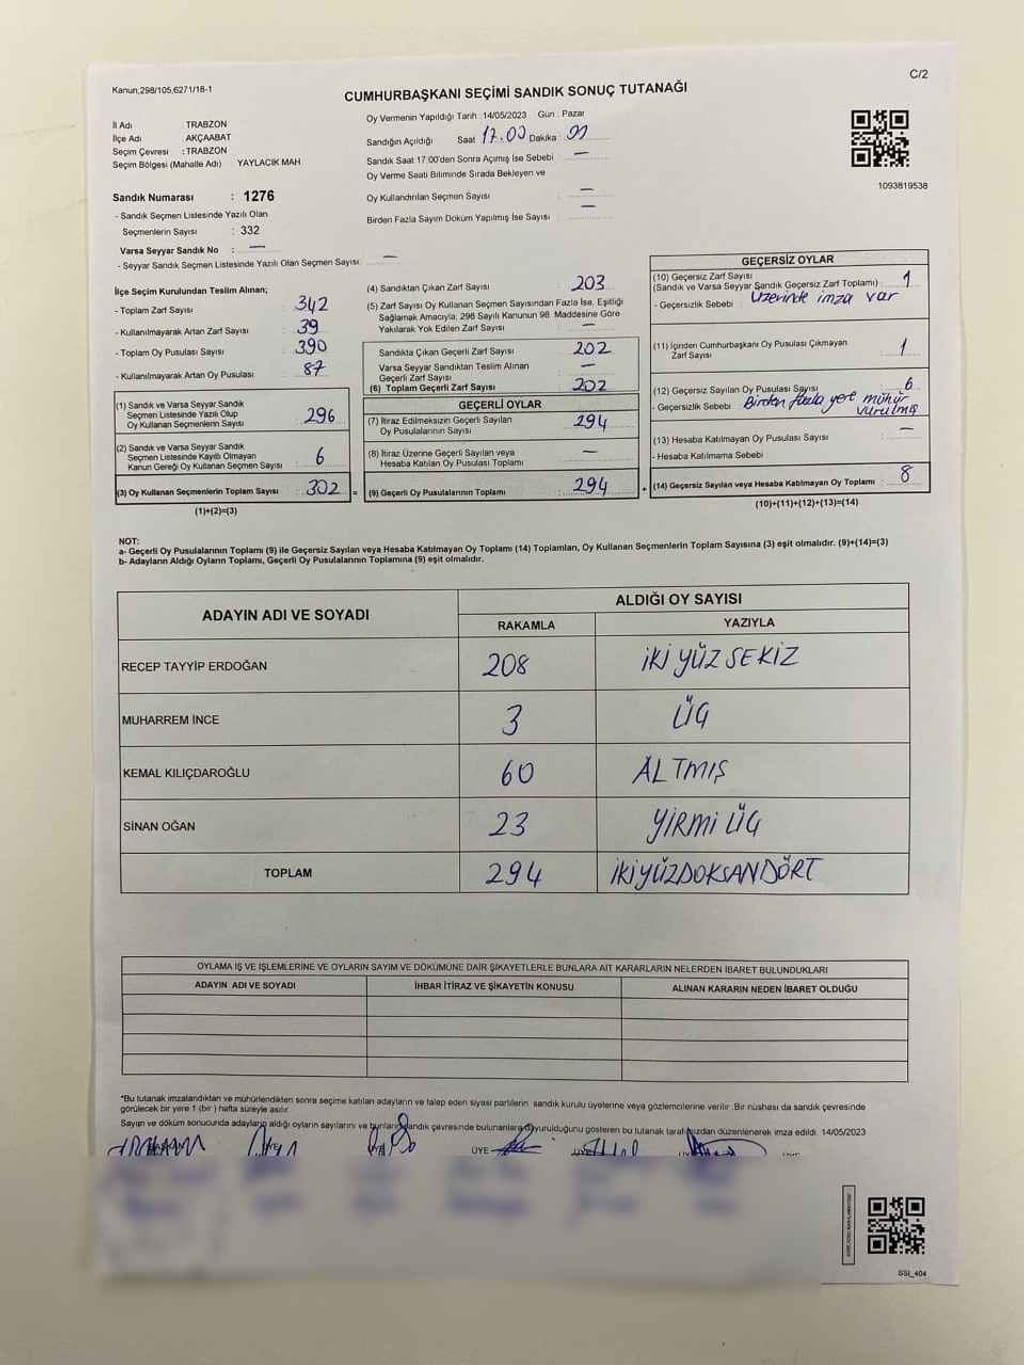 C/2
Kanun,298/105,6271/18-1
CUMHURBAŞKANI SEÇİMİ SANDIK SONUÇ TUTANAĞI
İl Adı TRABZON
İlçe Adı : AKÇAABAT
Seçim Çevresi : TRABZON
Seçim Bölgesi (Mahalle Adı) YAYLACIK MAH
Sandık Numarası : 1276
- Sandık Seçmen Listesinde Yazılı Olan
Seçmenlerin Sayısı : 332
Varsa Seyyar Sandık No : —
- Seyyar Sandık Seçmen Listesinde Yazılı Olan Seçmen Sayısı: —
Oy Vermenin Yapıldığı Tarih : 14/05/2023 Gün : Pazar
Sandığın Açıldığı Saat 17.00 Dakika
Sandık Saat 17:00'den Sonra Açımış İse Sebebi —
Oy Verme Saati Bitiminde Sırada Bekleyen ve
Oy Kullandırılan Seçmen Sayısı —
Birden Fazla Sayım Döküm Yapılmış İse Sayısı —
1093819538
İlçe Seçim Kurulundan Teslim Alınan;
- Toplam Zarf Sayısı 342
- Kullanılmayarak Artan Zarf Sayısı 39
- Toplam Oy Pusulası Sayısı 390
- Kullanılmayarak Artan Oy Pusulası 87
(1) Sandık ve Varsa Seyyar Sandık
Seçmen Listesinde Yazılı Olup
Oy Kullanan Seçmenlerin Sayısı 296
(2) Sandık ve Varsa Seyyar Sandık
Seçmen Listesinde Kayıtlı Olmayan
Kanun Gereği Oy Kullanan Seçmen Sayısı 6
(3) Oy Kullanan Seçmenlerin Toplam Sayısı : 302 =
(1)+(2)=(3)
(4) Sandıktan Çıkan Zarf Sayısı 203
(5) Zarf Sayısı Oy Kullanan Seçmen Sayısından Fazla İse, Eşitliği
Sağlamak Amacıyla; 298 Sayılı Kanunun 98. Maddesine Göre
Yakılarak Yok Edilen Zarf Sayısı —
Sandıkta Çıkan Geçerli Zarf Sayısı 202
Varsa Seyyar Sandıktan Teslim Alınan
Geçerli Zarf Sayısı —
(6) Toplam Geçerli Zarf Sayısı 202
GEÇERLİ OYLAR
(7) İtiraz Edilmeksizin Geçerli Sayılan
Oy Pusulalarının Sayısı 294
(8) İtiraz Üzerine Geçerli Sayılan veya
Hesaba Katılan Oy Pusulası Toplamı —
(9) Geçerli Oy Pusulalarının Toplamı 294 +
GEÇERSİZ OYLAR
(10) Geçersiz Zarf Sayısı
(Sandık ve Varsa Seyyar Sandık Geçersiz Zarf Toplamı) 1
- Geçersizlik Sebebi : Üzerinde imza var
(11) İçinden Cumhurbaşkanı Oy Pusulası Çıkmayan
Zarf Sayısı 1
(12) Geçersiz Sayılan Oy Pusulası Sayısı 6
- Geçersizlik Sebebi Birden fazla yere mühür
vurulmış
(13) Hesaba Katılmayan Oy Pusulası Sayısı : —
- Hesaba Katılmama Sebebi :
(14) Geçersiz Sayılan veya Hesaba Katılmayan Oy Toplamı : 8
(10)+(11)+(12)+(13)=(14)
NOT:
a- Geçerli Oy Pusulalarının Toplamı (9) ile Geçersiz Sayılan veya Hesaba Katılmayan Oy Toplamı (14) Toplamları, Oy Kullanan Seçmenlerin Toplam Sayısına (3) eşit olmalıdır. (9)+(14)=(3)
b- Adayların Aldığı Oyların Toplamı, Geçerli Oy Pusulalarının Toplamına (9) eşit olmalıdır.
ADAYIN ADI VE SOYADI ALDIĞI OY SAYISI
RAKAMLA YAZIYLA
RECEP TAYYİP ERDOĞAN 208 İKİ YÜZ SEKİZ
MUHARREM İNCE 3 ÜÇ
KEMAL KILIÇDAROĞLU 60 ALTMIŞ
SİNAN OĞAN 23 YİRMİ ÜÇ
TOPLAM 294 İKİYÜZDOKSANDÖRT
OYLAMA İŞ VE İŞLEMLERİNE VE OYLARIN SAYIM VE DÖKÜMÜNE DAİR ŞİKAYETLERLE BUNLARA AİT KARARLARIN NELERDEN İBARET BULUNDUKLARI
ADAYIN ADI VE SOYADI İHBAR İTİRAZ VE ŞİKAYETİN KONUSU ALINAN KARARIN NEDEN İBARET OLDUĞU
*Bu tutanak imzalandıktan ve mühürlendikten sonra seçime katılan adayların ve talep eden siyasi partilerin sandık kurulu üyelerine veya gözlemcilerine verilir. Bir nüshası da sandık çevresinde
görülecek bir yere 1 (bir) hafta süreyle asılır.
Sayım ve döküm sonucunda adayların aldığı oyların sayılarını ve bunların sandık çevresinde bulunanlara duyurulduğunu gösteren bu tutanak tarafımızdan düzenlenerek imza edildi. 14/05/2023
ÜYE
SSI_404